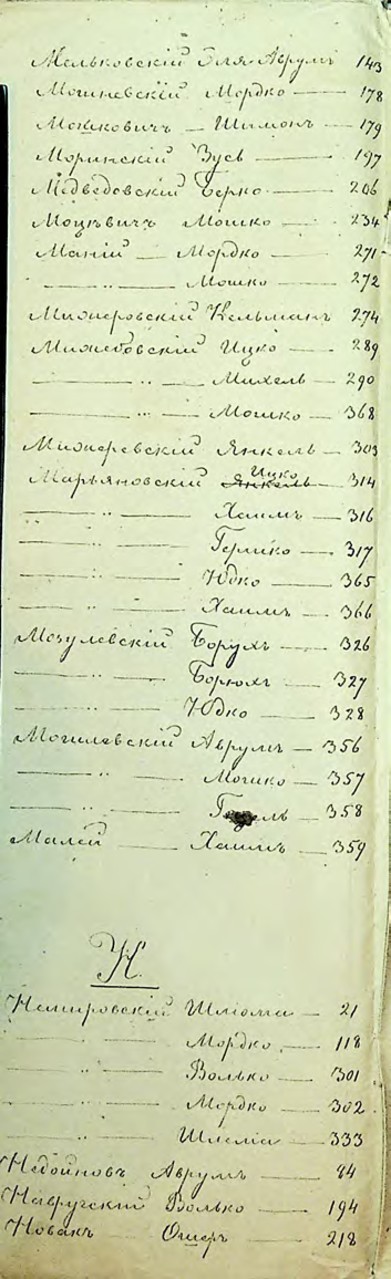 Мальковскій Эля-Аврумъ 143
Мошневскій Мордко — 178
Мошковичъ — Шимонъ — 179
Моринскій Зусь — 197
Медведовскій Берко — 206
Моцѣвичъ Мошко — 234
Маній — Мордко — 271
— " — Мошко — 272
Мижировскій Кельманъ 274
Мижибовскій Ицко — 289
— " — Михель — 290
— " — Мошко — 368
Мижиревскій Янкель — 303
Марьяновскій Ицко — 314
— " — Хаимъ — 316
— " — Гершко — 317
— " — Юдко — 365
— " — Хаимъ — 366
Мозулевскій Борухъ — 326
— " — Борюхъ — 327
— " — Юдко — 328
Могилевскій Аврумъ — 356
— " — Мошко — 357
— " — 358
Малей — Хаимъ — 359
Н.
Немировскій Шлома — 21
— " — Мордко — 118
— " — Волько — 301
— " — Мордко — 302
— " — Шлема — 333
Недойновъ Аврумъ — 84
Навруцкий Волько — 194
Новакъ Ошеръ — 218